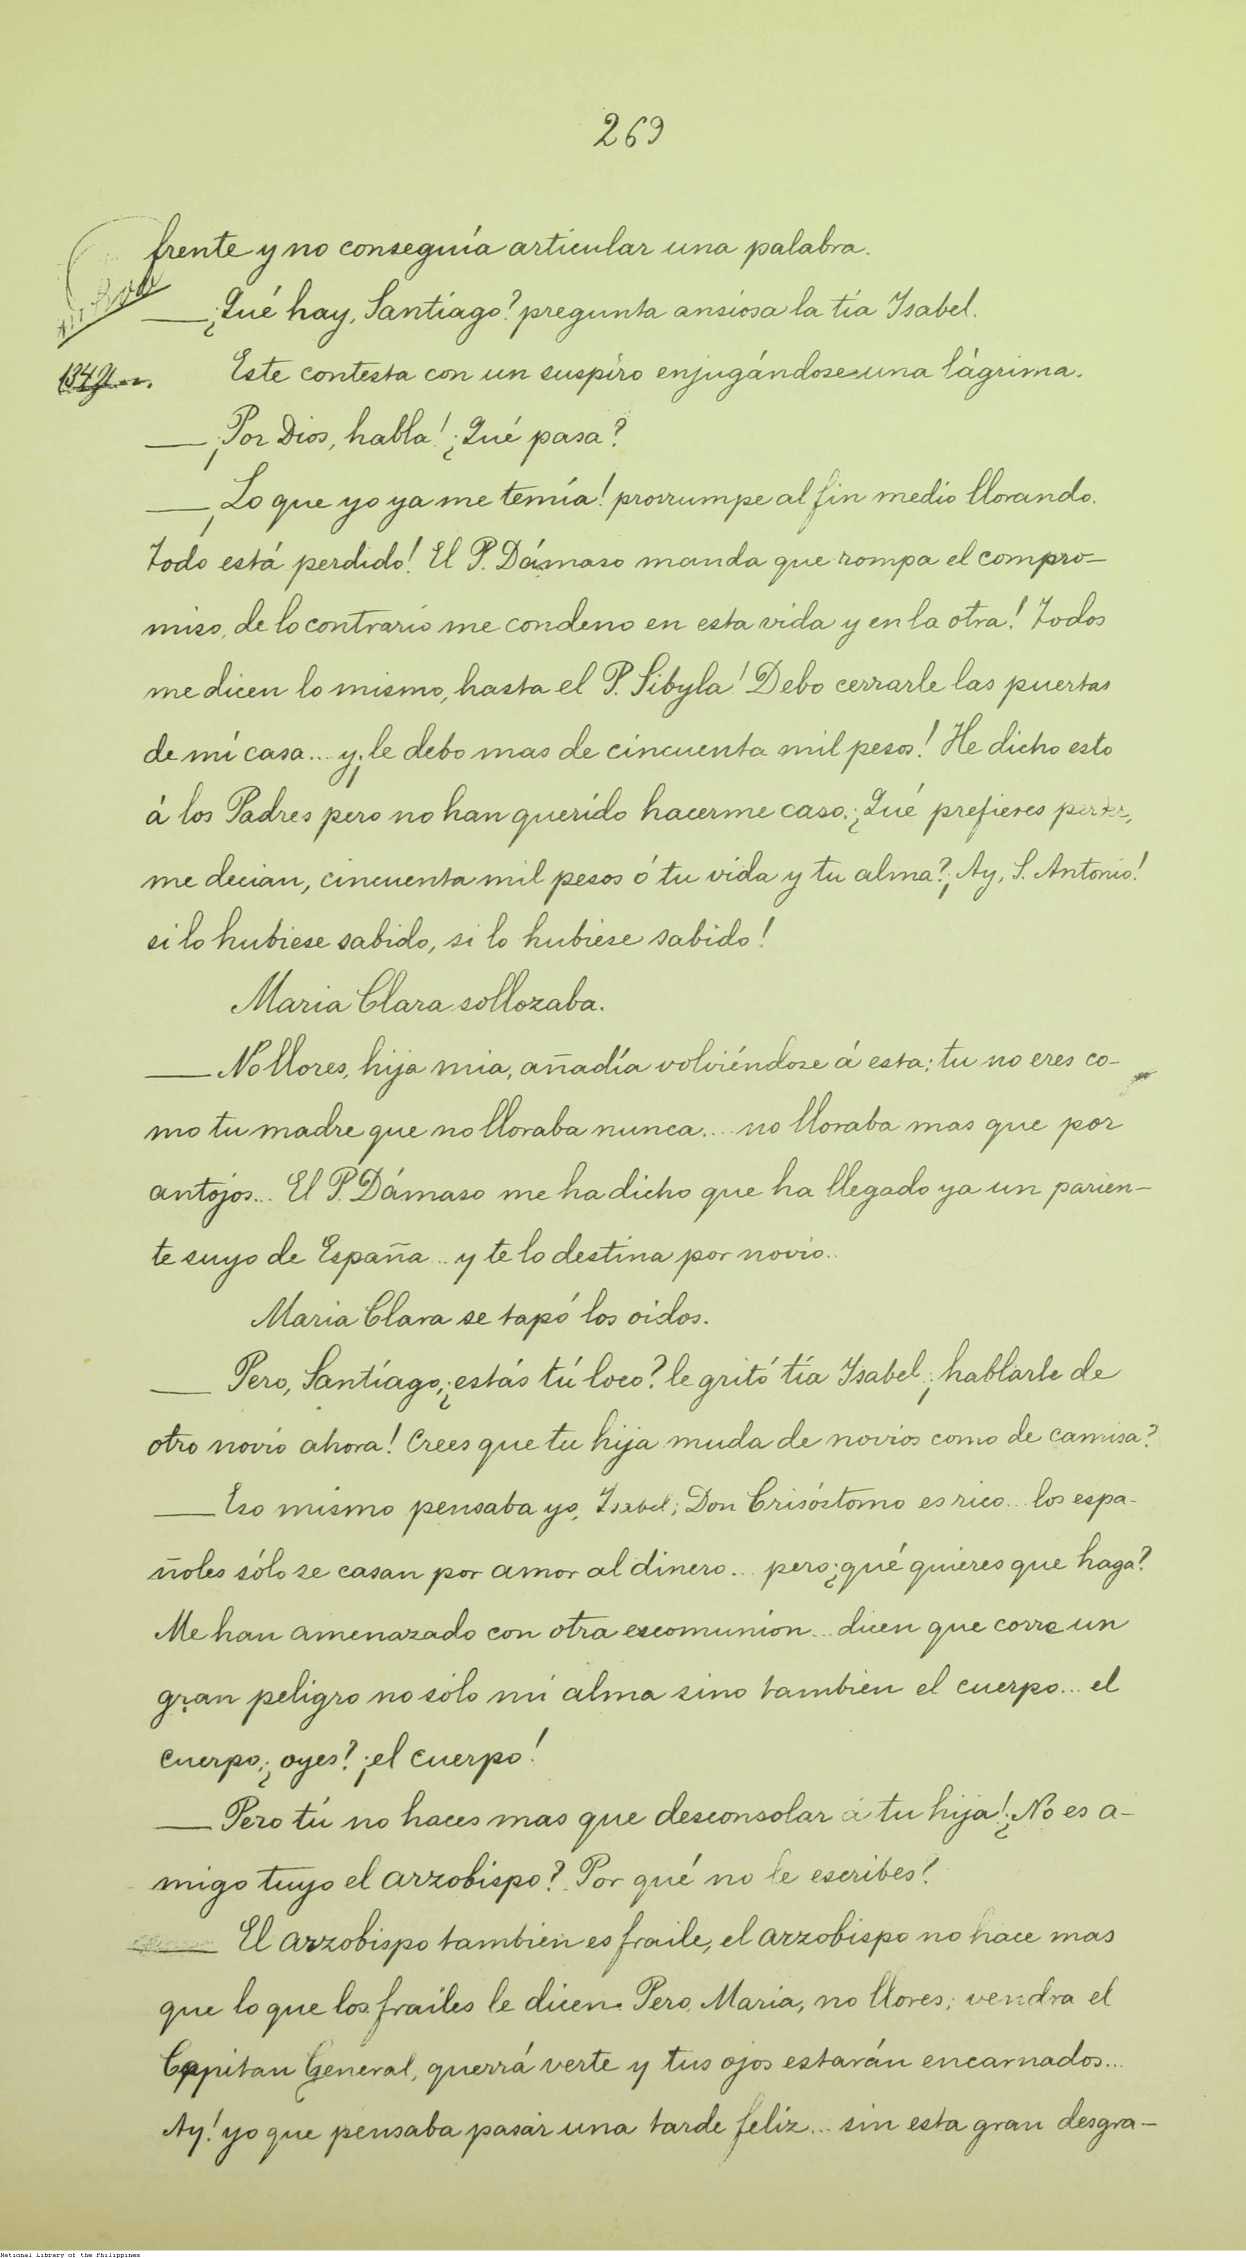 269
frente y no conseguía articular una palabra.
— ¿Qué hay, Santiago? pregunta ansiosa la tía Isabel.
Este contesta con un suspiro enjugándose una lágrima.
— ¡Por Dios, habla! ¿Qué pasa?
— ¡Lo que yo ya me temía! prorrumpe al fin medio llorando.
Todo está perdido! El P. Dámaso manda que rompa el compro-
miso, de lo contrario me condeno en esta vida y en la otra! Todos
me dicen lo mismo, hasta el P. Sibyla! Debo cerrarle las puertas
de mi casa... y ¡le debo mas de cincuenta mil pesos! He dicho esto
á los Padres pero no han querido hacerme caso. ¿Qué prefieres perder,
me decian, cincuenta mil pesos ó tu vida y tu alma? ¡Ay, S. Antonio!
si lo hubiese sabido, si lo hubiese sabido!
Maria Clara sollozaba.
— No llores, hija mia, añadía volviéndose á esta; tu no eres co-
mo tu madre que no lloraba nunca... no lloraba mas que por
antojos... El P. Dámaso me ha dicho que ha llegado ya un parien-
te suyo de España... y te lo destina por novio...
Maria Clara se tapó los oidos.
— Pero, Santiago, ¿estás tú loco? le gritó tía Isabel; ¡hablarle de
otro novio ahora! Crees que tu hija muda de novios como de camisa?
— Eso mismo pensaba yo, Isabel; Don Crisóstomo es rico... los espa-
ñoles sólo se casan por amor al dinero... pero ¿qué quieres que haga?
Me han amenazado con otra escomunion... dicen que corre un
gran peligro no sólo mi alma sino tambien el cuerpo... el
cuerpo, ¿oyes? ¡el cuerpo!
— Pero tú no haces mas que desconsolar á tu hija! ¿No es a-
migo tuyo el arzobispo? Por qué no le escribes?
— El arzobispo tambien es fraile, el arzobispo no hace mas
que lo que los frailes le dicen. Pero, Maria, no llores; vendra el
Capitan General, querrá verte y tus ojos estarán encarnados...
Ay! yo que pensaba pasar una tarde feliz... sin esta gran desgra-
National Library of the Philippines